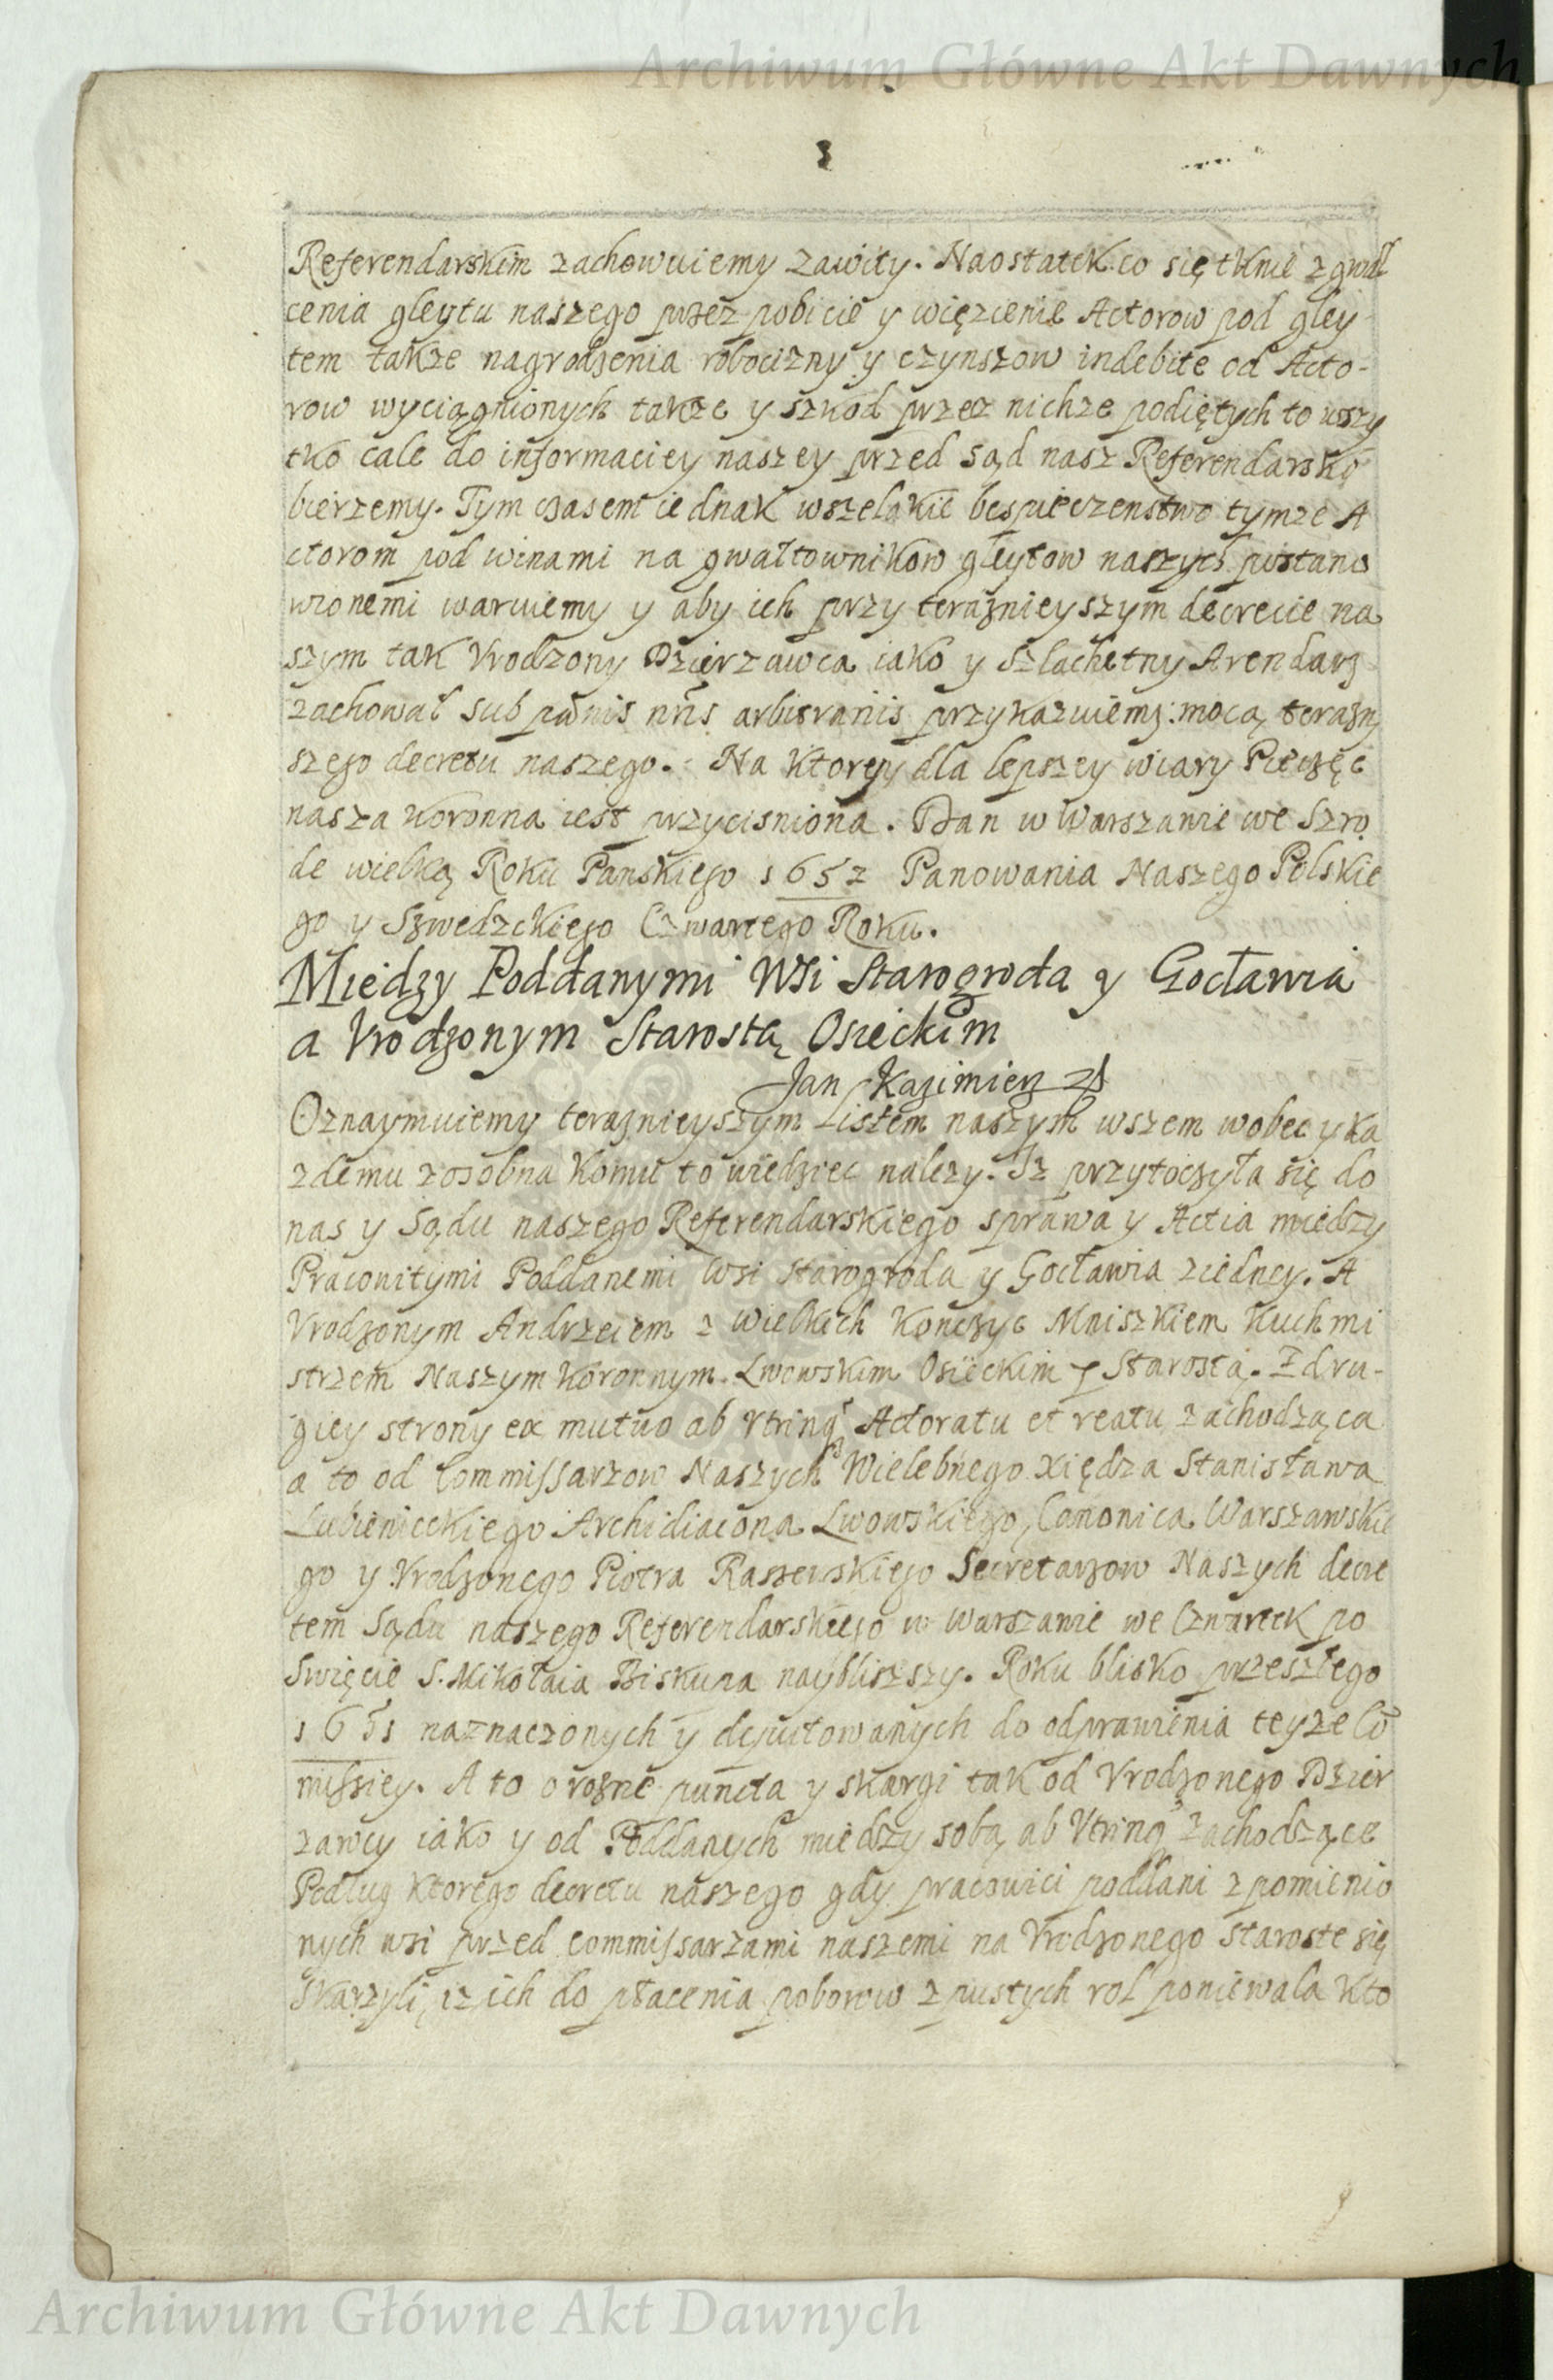 Archiwum Główne Akt Dawnych
Referendarskim zachowuiemy zawity. Naostatek co się tknie zgwał
cenia gleytu naszego przez pobicie y więzienie Actorow pod gley
tem także nagrodzenia robocizny y czynszow indebite od Acto-
row wyciągnionych także y szkod przez nichże podiętych to wszy
tko cale do informaciey naszey przed sąd nasz Referendarski
bierzemy. Tym czasem iednak wszelakie bespieczenstwo tymże A
ctorom pod winami na gwałtownikow gleytow naszych postano
wionemi waruiemy y aby ich przy teraznieyszym decrecie na
szym tak Vrodzony Dzierzawca iako y Szlachetny Arendarz
zachował sub pœnis nr̃is arbitrariis przykazuiemy mocą terazn
szego decretu naszego. Na ktorey dla lepszey wiary Pieczęc
nasza koronna iest przycisniona. Dan w Warszawie we Szro
de wielką Roku Panskiego 1652 Panowania Naszego Polskie
go y Szwedzkiego Czwartego Roku.
Między Poddanymi Wsi Starogroda y Gocławia
a Vrodzonym Starostą Osieckim
Jan Kazimierz
Oznaymuiemy teraznieyszym Listem naszym wszem wobec y ka
zdemu zosobna komu to wiedziec nalezy. Iz przytoczyła się do
nas y Sądu naszego Referendarskiego sprawa y Actia między
Pracowitymi Poddanemi Wsi Starogroda y Gocławia ziedney. A
Vrodzonym Andrzeiem z Wielkich Konczyc Mniszkiem Kuchmi
strzem Naszym Koronnym. Lwowskim Osieckim Starostą. Zdru-
giey strony ex mutuo ab Vtrinq3 Actoratu et reatu zachodząca
a to od Commissarzow Naszych Wielebnego Xiędza Stanisława
Lubienieckiego Archidiacona Lwowskiego, Canonica Warszawskie
go y Vrodzonego Piotra Raszewskiego Secretarzow Naszych decre
tem Sądu naszego Referendarskiego w Warszawie we Czwartek po
Swięcie S. Mikołaia Biskupa naybliszszy. Roku blisko przeszłego
1651 naznaczonych y deputowanych do odprawienia teyze Cõ
missiey. A to o rozne puncta y skargi tak od Vrodzonego Dzier
zawcy iako y od Poddanych między sobą ab Vtrinq3 zachodzące
Podług ktorego decretu naszego gdy pracowici poddani zpomienio
nych wsi przed commissarzami naszemi na Vrodzonego staroste się
skarzyli, iz ich do płacenia poborow z pustych rol poniewala kto
Archiwum Główne Akt Dawnych